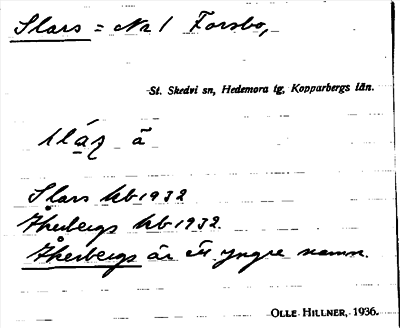 Slars = Nr 1 Forsbo,
St. Skedvi sn, Hedemora tg, Kopparbergs län.
slás̱ ä
Slars kb 1932
Åkerbergs kb 1932.
Åkerbergs är ett yngre namn.
OLLE HILLNER, 1936.